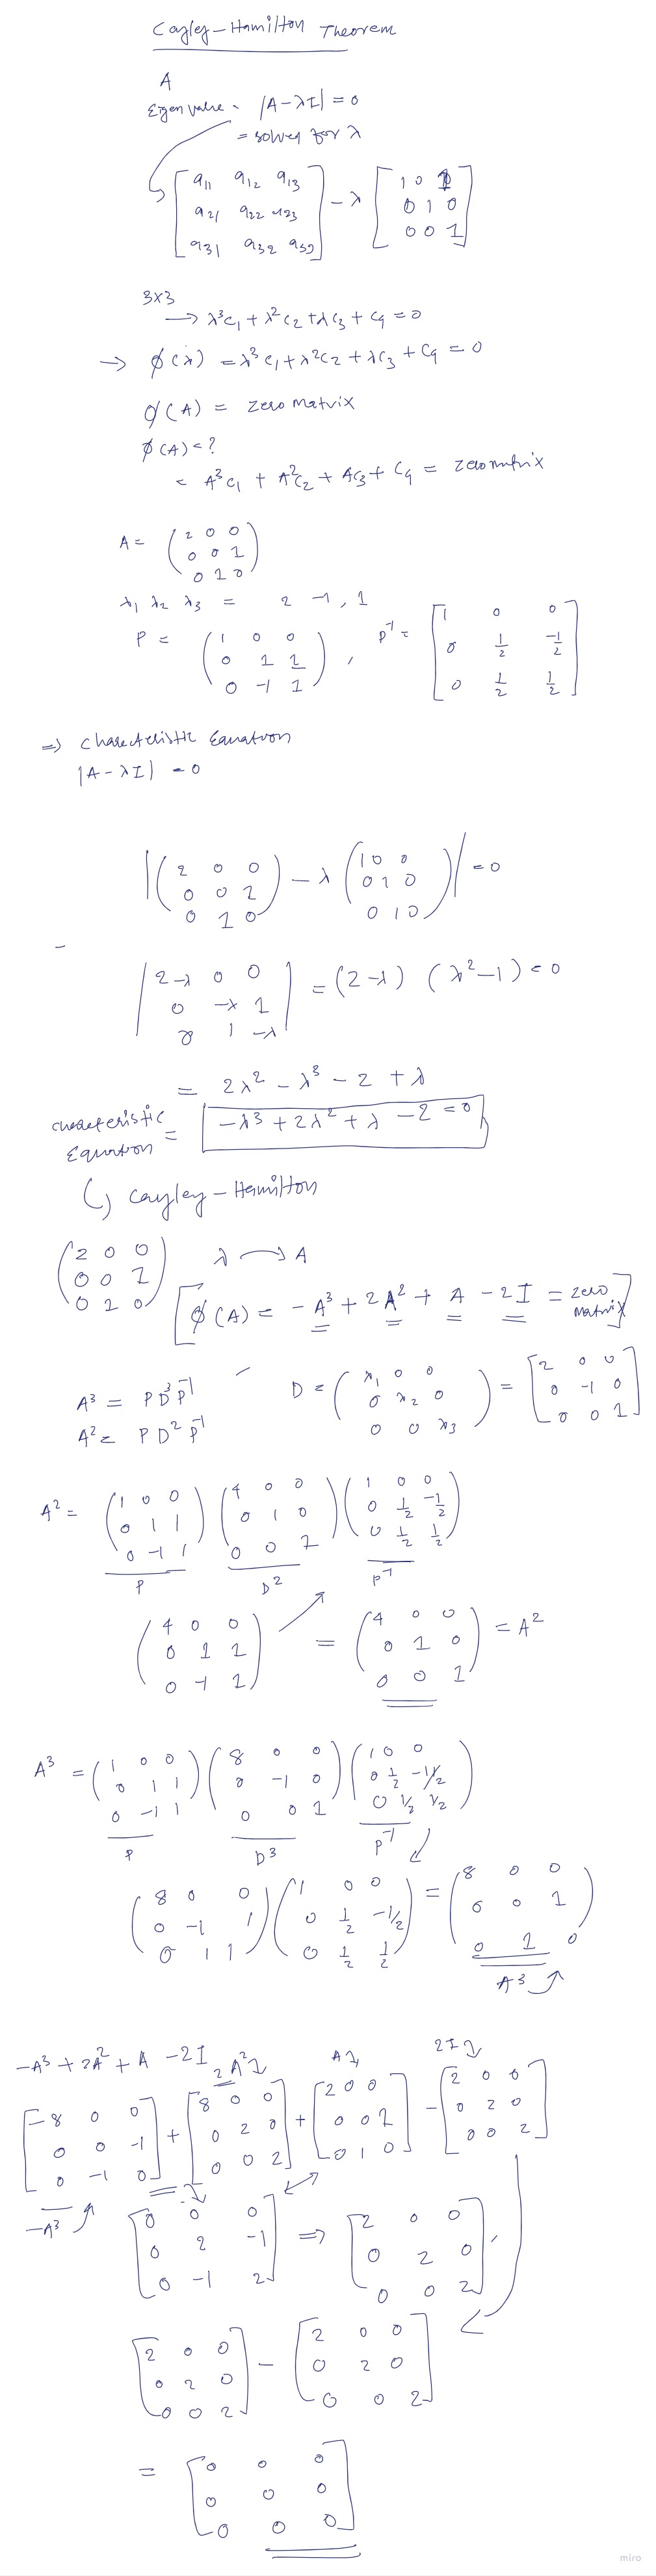 Cayley-Hamilton Theorem
A
Eigen value - |A-λI| = 0
= solved for λ
[a11 a12 a13
a21 a22 a23
a31 a32 a33] - λ [1 0 0
0 1 0
0 0 1]
3x3
→ λ³c1 + λ²c2 + λc3 + c4 = 0
→ φ(λ) = λ³c1 + λ²c2 + λc3 + c4 = 0
φ(A) = zero matrix
φ(A) = ?
= A³c1 + A²c2 + Ac3 + c4 = zero matrix
A = (2 0 0
0 0 1
0 1 0)
λ1 λ2 λ3 = 2 -1, 1
P = (1 0 0
0 1 1
0 -1 1), P⁻¹ = [1 0 0
0 1/2 -1/2
0 1/2 1/2]
⇒ characteristic Equation
|A-λI| = 0
|(2 0 0
0 0 1
0 1 0) - λ (1 0 0
0 1 0
0 1 0)| = 0
-
|2-λ 0 0
0 -λ 1
0 1 -λ| = (2-λ) (λ²-1) = 0
= 2λ² - λ³ - 2 + λ
characteristic Equation = -λ³ + 2λ² + λ - 2 = 0
↳ Cayley-Hamilton
(2 0 0
0 0 1
0 1 0) λ → A
[φ(A) = -A³ + 2A² + A - 2I = zero matrix]
A³ = PD³P⁻¹
A² = PD²P⁻¹
D = (λ1 0 0
0 λ2 0
0 0 λ3) = [2 0 0
0 -1 0
0 0 1]
A² = (1 0 0
0 1 1
0 -1 1) (4 0 0
0 1 0
0 0 1) (1 0 0
0 1/2 -1/2
0 1/2 1/2)
P D² P⁻¹
(4 0 0
0 1 1
0 -1 1) = (4 0 0
0 1 0
0 0 1) = A²
A³ = (1 0 0
0 1 1
0 -1 1) (8 0 0
0 -1 0
0 0 1) (1 0 0
0 1/2 -1/2
0 1/2 1/2)
P D³ P⁻¹
(8 0 0
0 -1 1
0 1 1) (1 0 0
0 1/2 -1/2
0 1/2 1/2) = (8 0 0
0 0 1
0 1 0)
A³
-A³ + 2A² + A - 2I
2A² A 2I
[-8 0 0
0 0 -1
0 -1 0] + [8 0 0
0 2 0
0 0 2] + [2 0 0
0 0 1
0 1 0] - [2 0 0
0 2 0
0 0 2]
-A³
[0 0 0
0 2 -1
0 -1 2] ⇒ [2 0 0
0 2 0
0 0 2]
[2 0 0
0 2 0
0 0 2] - [2 0 0
0 2 0
0 0 2]
= [0 0 0
0 0 0
0 0 0]
miro